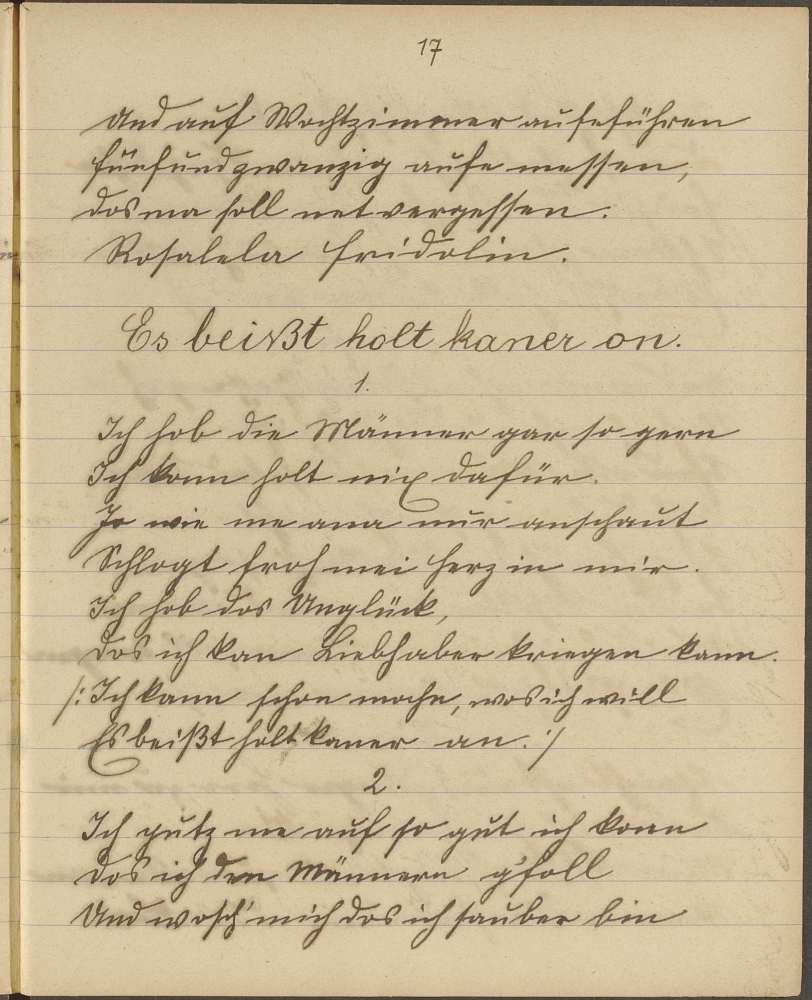 17
Und auf Wochtzimmer aufeführen
fünfundzwanzig aufe messen,
dos ma soll net vergessen.
Rosalela Fridolin.
Es beißt holt kaner on.
1.
Ich hob die Männer gar so gern
Ich konn holt nix dafür.
Jo wie me ana nur anschaut
Schlogt froh mei Herz in mir.
Ich hob dos Unglück,
Dos ich kan Liebhaber kriegen kann.
/: Ich kann schon mochn, wos ich will
Es beißt holt kaner an. :/
2.
Ich putz me auf so gut ich konn
Dos ich den Männern g'foll
Und wosch' mich dos ich sauber bin